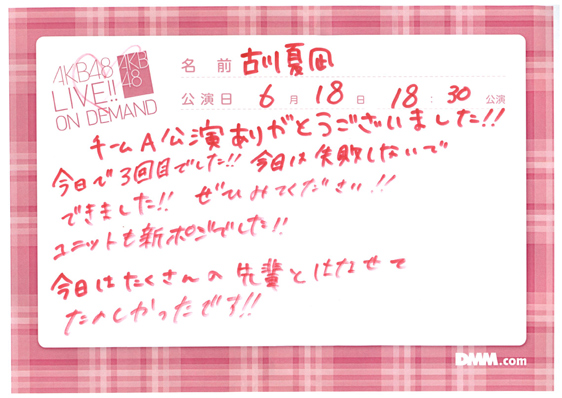 AKB48
LIVE!!
ON DEMAND
AKB
48
名前 古川夏凪
公演日 6月18日 18:30公演
チームA公演ありがとうございました!!
今日で3回目でした!! 今日は失敗しないで
できました!! ぜひみてください!!
ユニットも新ポジでした!!
今日はたくさんの先輩とはなせて
たのしかったです!!
DMM.com